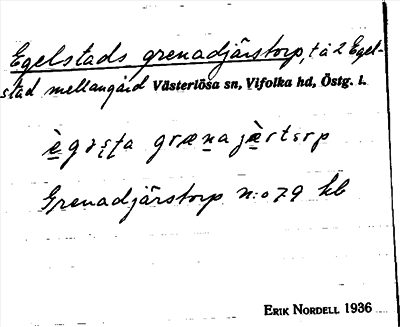 Egelstads grenadjärstorp, t å 2 Egel-
stad mellangård Västerlösa sn, Vifolka hd, Östg. l.
grænajæ̀rtɔrp
Grenadjärstorp n:o 79 kb
ERIK NORDELL 1936